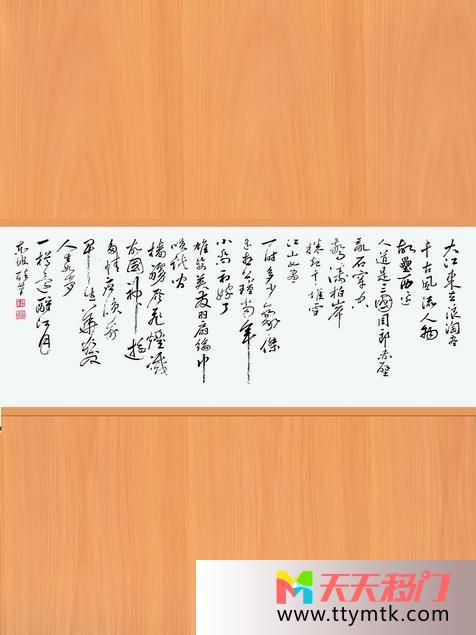 大江東去浪淘尽
千古風流人物
故壘西边
人道是三國周郎赤壁
乱石穿空
驚濤拍岸
捲起千堆雪
江山如画
一时多少豪傑
遥想公瑾当年
小喬初嫁了
雄姿英发羽扇綸巾
談笑间
檣櫓灰飛煙滅
故國神遊
多情应笑我
早生華发
人生如梦
一樽还酹江月
东坡
天天移门
www.ttymtk.com